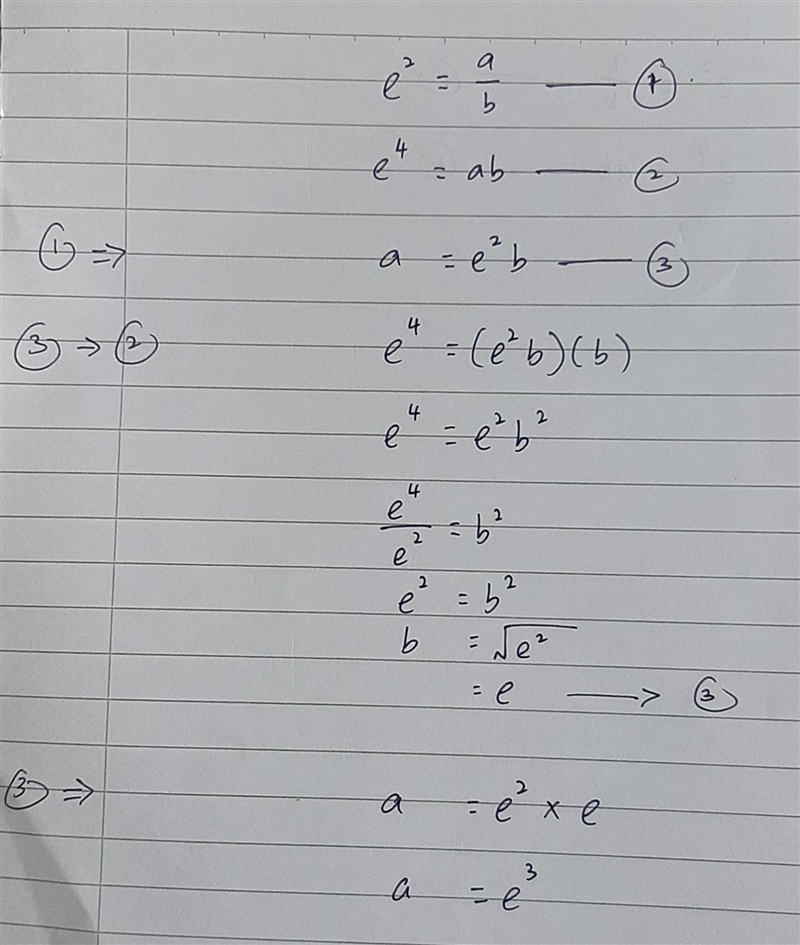 e² = a/b —— ①
e⁴ = ab —— ②
① ⇒ a = e²b —— ③
③ → ② e⁴ = (e²b)(b)
e⁴ = e²b²
e⁴/e² = b²
e² = b²
b = √e²
= e ——> ③
③ ⇒ a = e² × e
a = e³